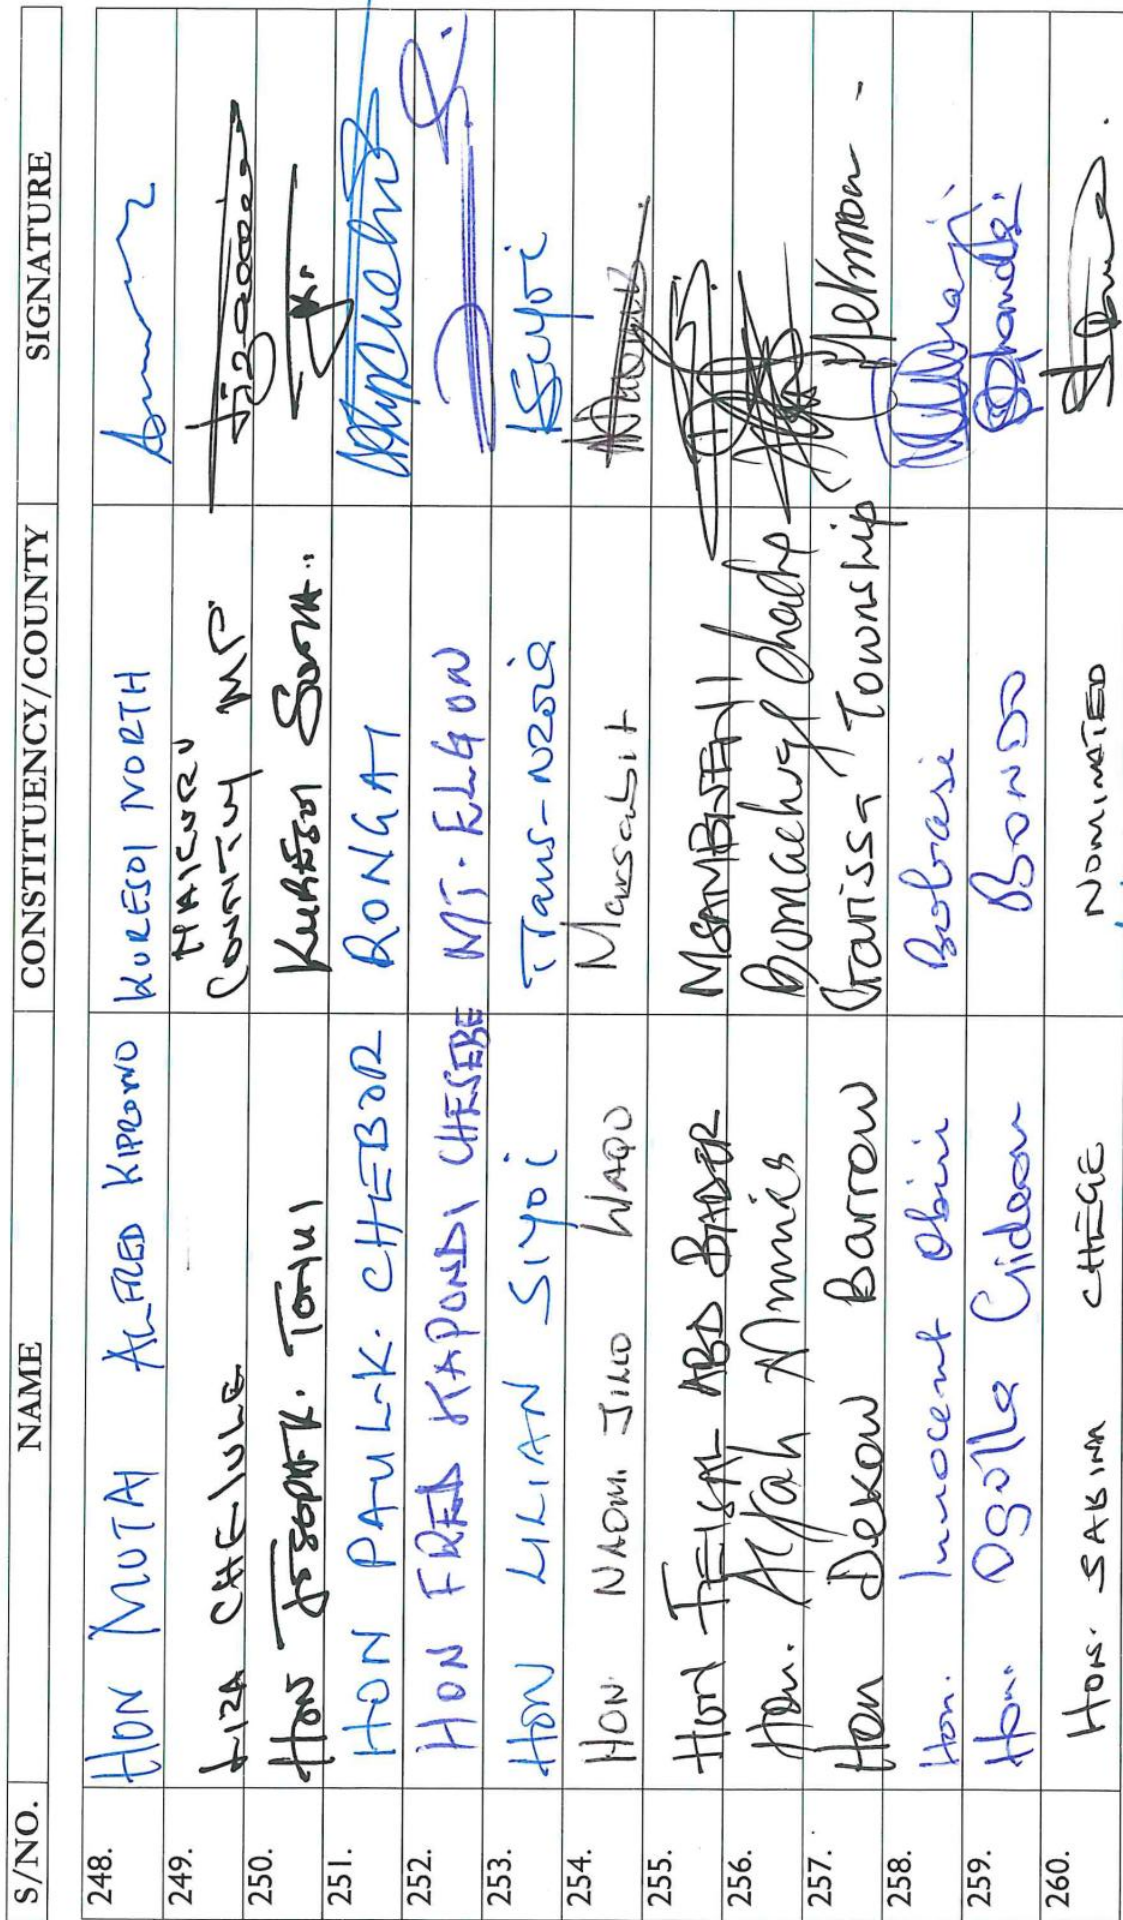 S/NO. NAME CONSTITUENCY/COUNTY SIGNATURE
248. HON MUTAI ALFRED KIPRONO KURESOI NORTH
249. LIZA CHELULE NAKURU COUNTY MP
250. HON JOSEPH K. TONUI KURESOI SOUTH
251. HON PAUL K. CHEBOR RONGAI
252. HON FRED KAPONDI CHESEBE MT. ELGON
253. HON LILIAN SIYOI Trans-Nzoia LSiyoi
254. HON. NAOMI JILLO WAQO Marsabit
255. HON FEISAL ABD BADER MSAMBWENI
256. Hon. Alfah Miruka Bomachoge Chache
257. Hon Dekow Barrow Garissa Township
258. Hon. Innocent Obiri Bobasi
259. Hon. Ogolla Gideon BONDO
260. HON. SABINA CHEGE NOMINATED